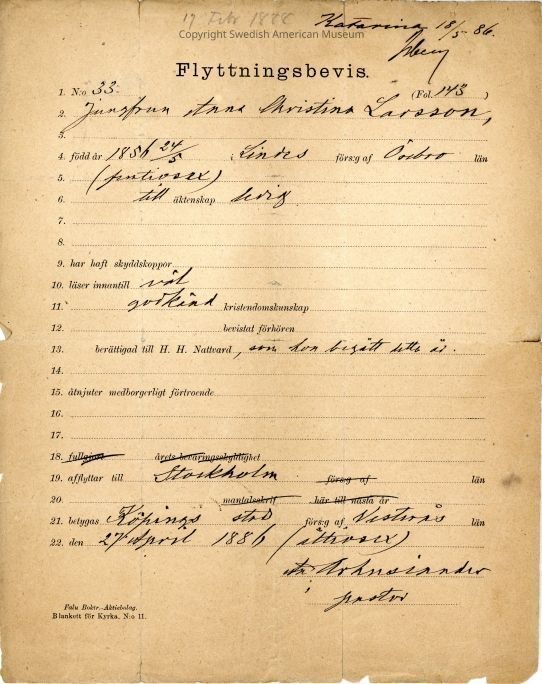 17 Febr 1888
Katarina 18/5 86.
Copyright Swedish American Museum
Flyttningsbevis.
1. N:o 33. (Fol. 143 )
2. Jungfrun Anna Christina Larsson,
3.
4. född år 1856 24/5 Lindes förs:g af Örebro län
5. (femtiosex)
6. till äktenskap ledig
7.
8.
9. har haft skyddskoppor
10. läser innantill väl
11. godkänd kristendomskunskap
12. bevistat förhören
13. berättigad till H. H. Nattvard, som hon begått detta år.
14.
15. åtnjuter medborgerligt förtroende
16.
17.
18. fullgjort årets beväringsskyldighet
19. afflyttar till Stockholm förs:g af län
20. mantalsskrif här till nästa år
21. betygas Köpings stad förs:g af Vesterås län
22. den 27 April 1886 (åttiosex)
pastor
Falu Boktr.-Aktiebolag.
Blankett för Kyrka. N:o 11.